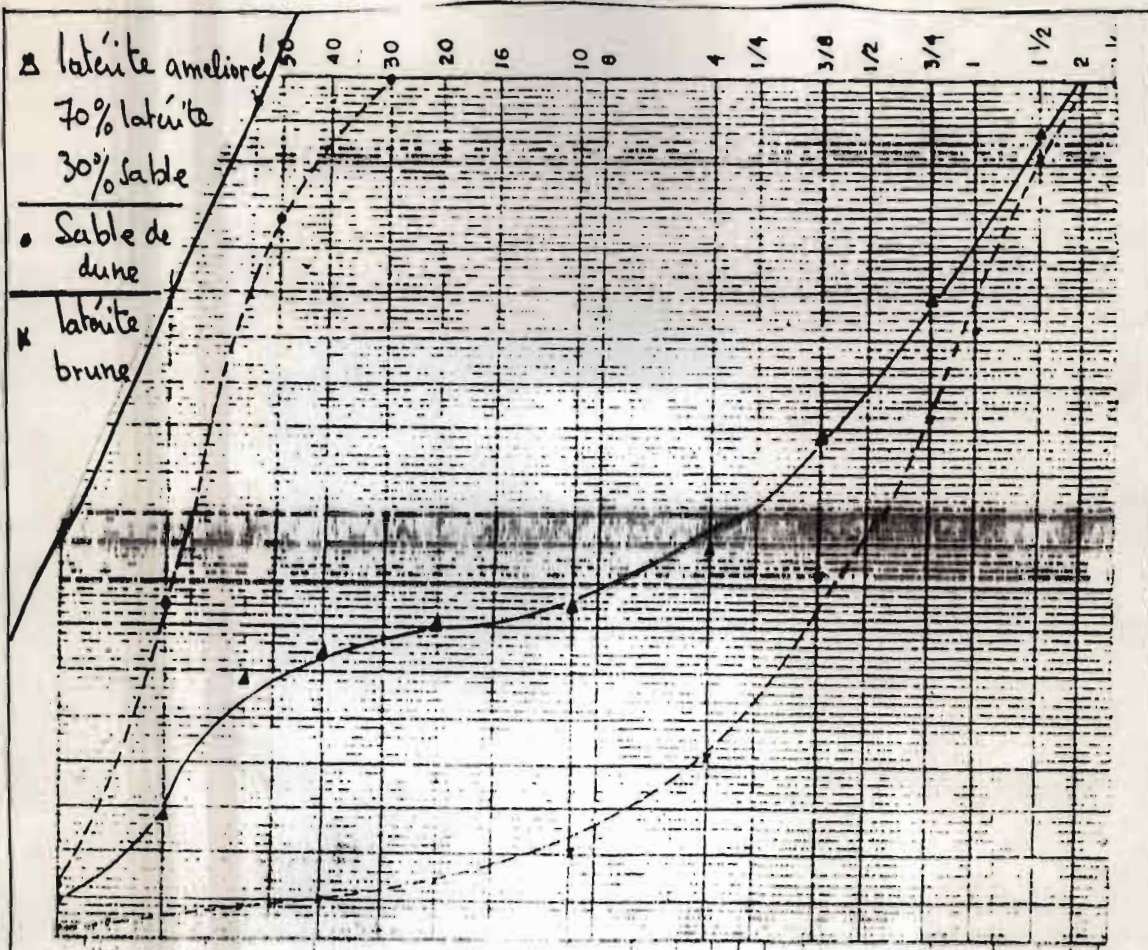 latérite amelioré
70% latérite
30% sable
Sable de
dune
latérite
brune
50 40 30 20 16 10 8 4 1/4 3/8 1/2 3/4 1 1 1/2 2